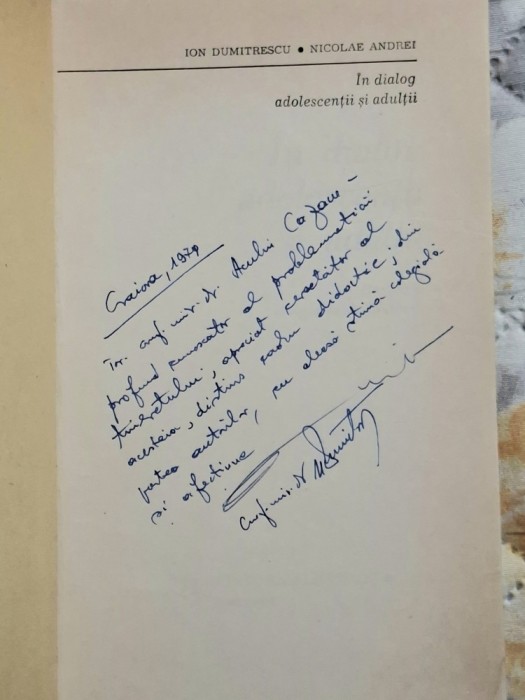 ION DUMITRESCU • NICOLAE ANDREI
În dialog
adolescenții și adulții
Craiova, 1979
Tov. conf. univ. dr. Aculin Cazacu –
profund cunoscător al problematicii
tineretului, apreciat cercetător al
acesteia, distins cadru didactic, din
partea autorilor, cu aleasă stimă colegială
și afecțiune
Conf. univ. dr.